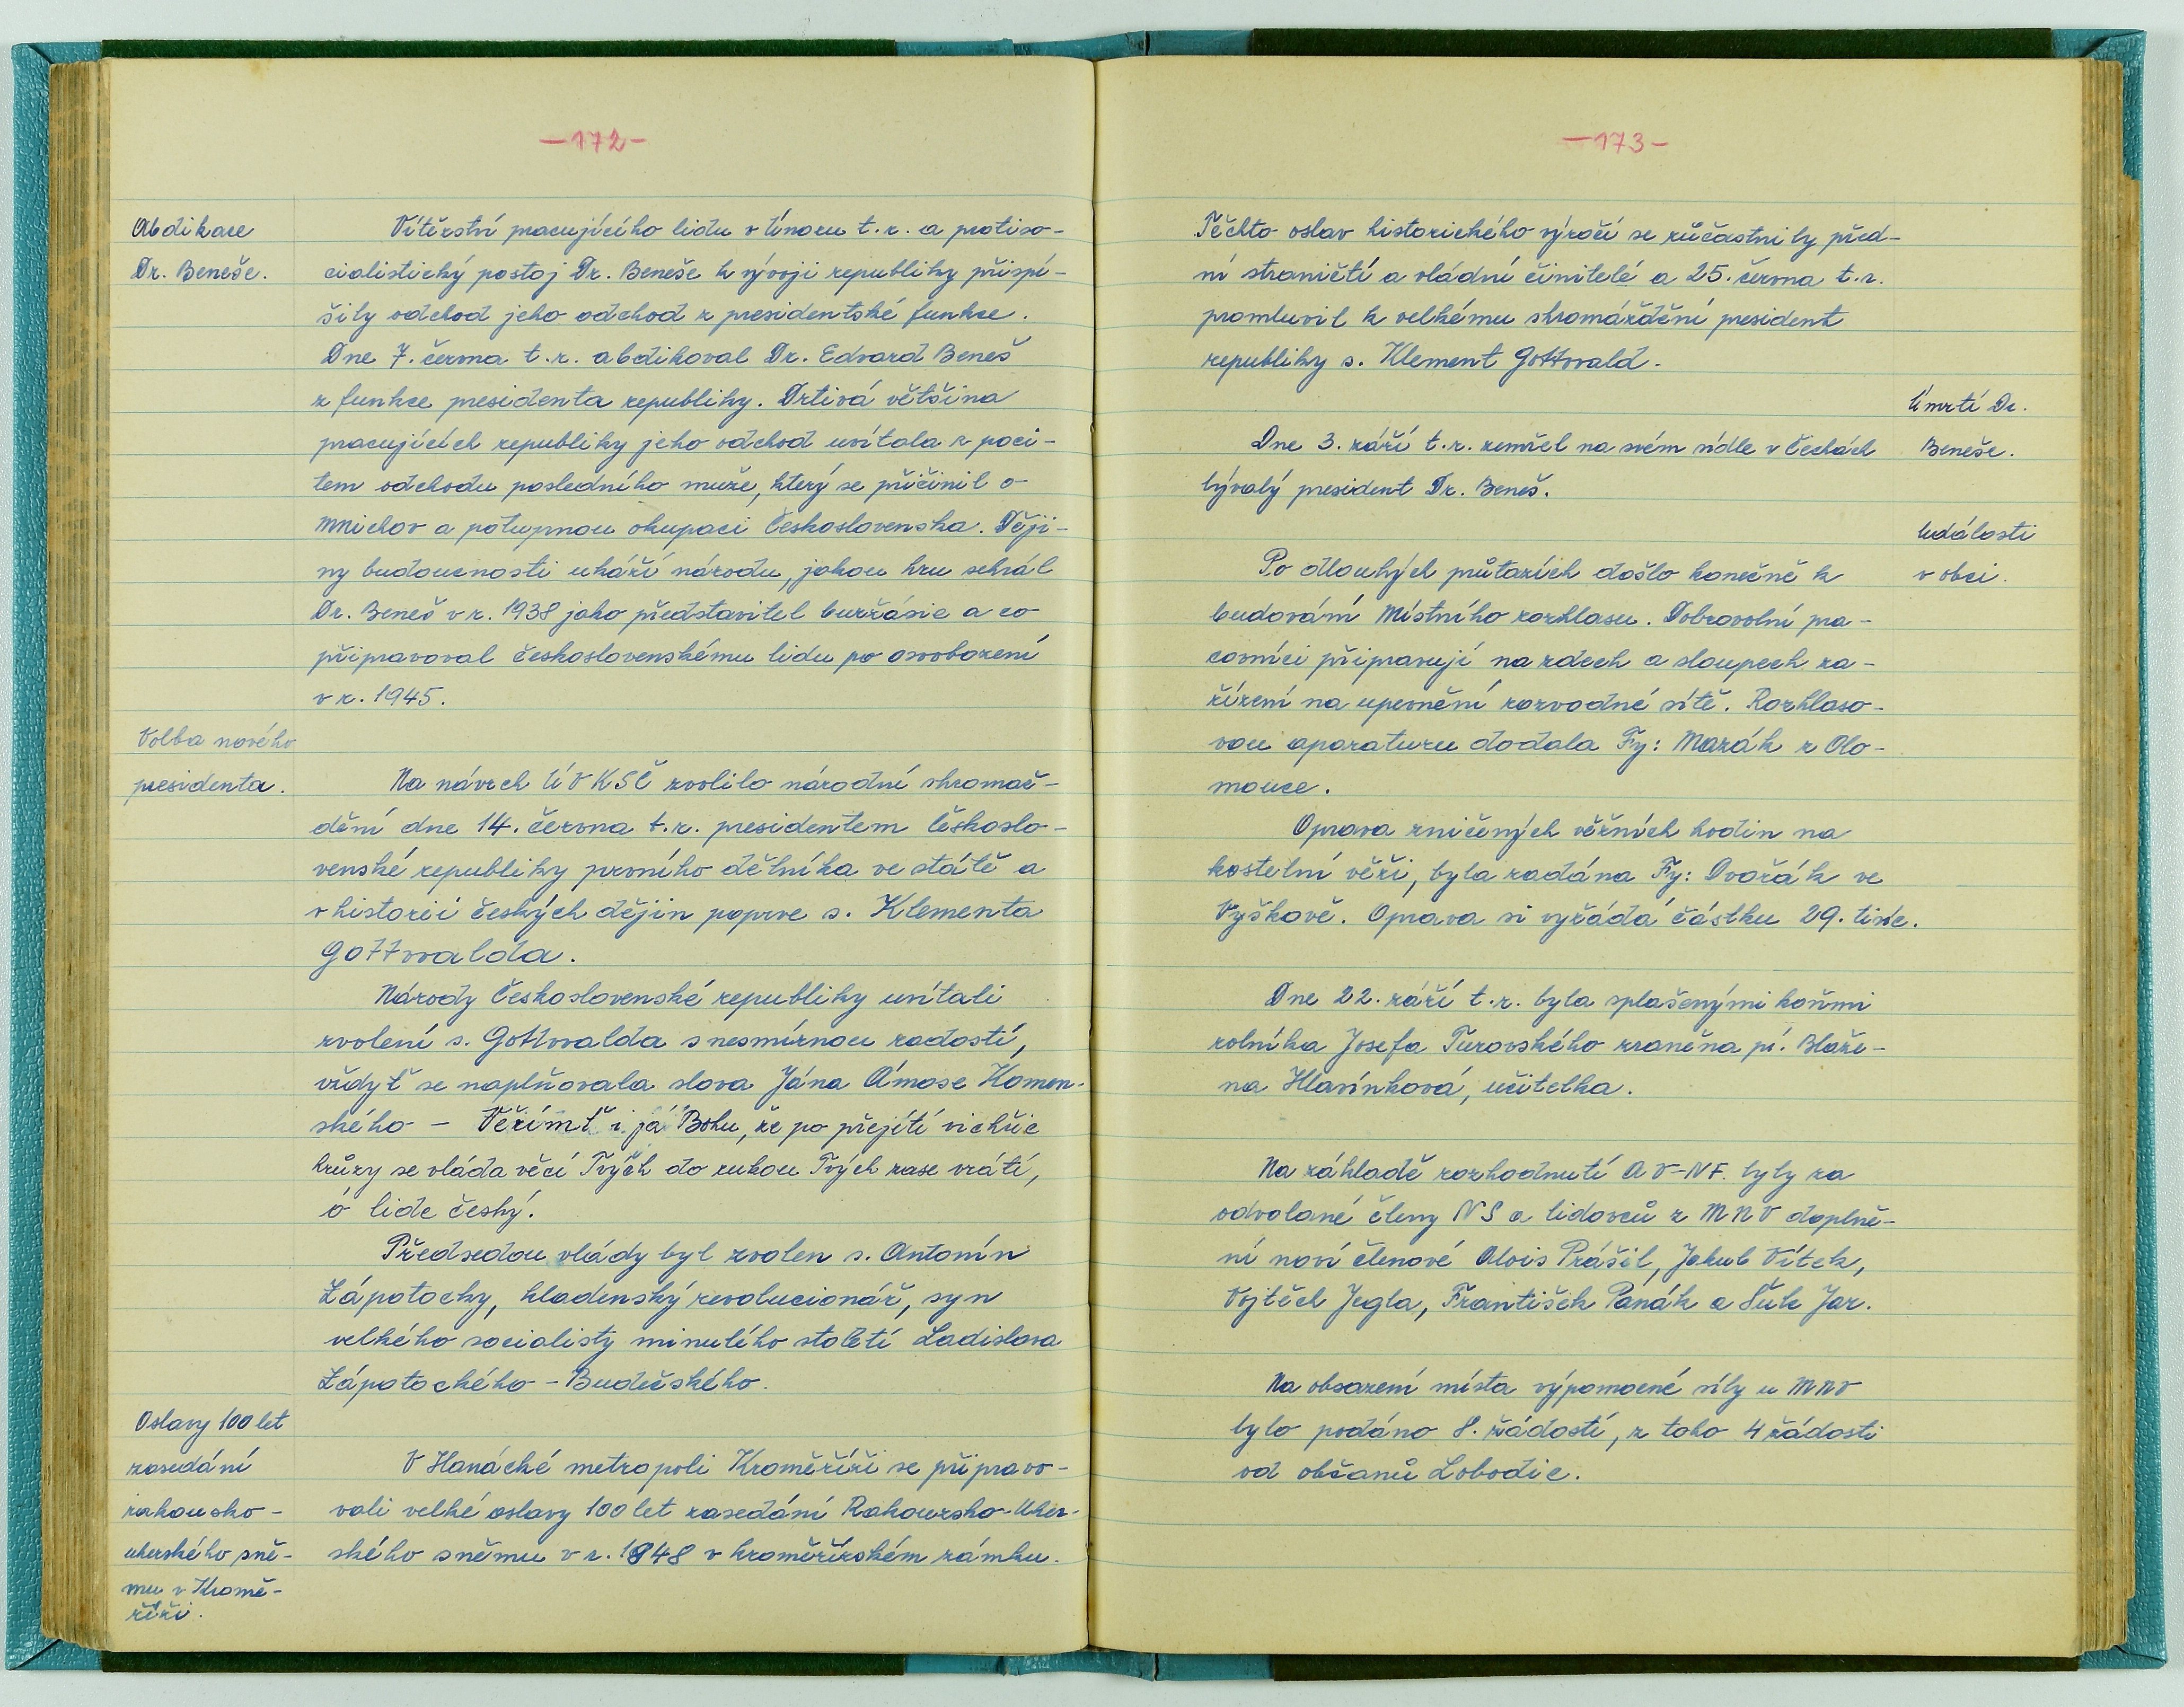 -172-
Abdikace
Dr. Beneše.
Vítězství pracujícího lidu v únoru t.r. a protiso-
cialistický postoj Dr. Beneše k vývoji republiky přispí-
šily odchod jeho odchod z presidentské funkce.
Dne 7. června t.r. abdikoval Dr. Edvard Beneš
z funkce presidenta republiky. Drtivá většina
pracujících republiky jeho odchod uvítala s poci-
tem odchodu posledního muže, který se přičinil o
Mnichov a potupnou okupaci Československa. Ději-
ny budoucnosti ukáží národu, jakou hru sehrál
Dr. Beneš v r. 1938 jako představitel buržásie a co
připravoval československému lidu po osvobození
v r. 1945.
Volba nového
presidenta.
Na návrch ÚV KSČ zvolilo národní shromaž-
dění dne 14. června t.r. presidentem českoslo-
venské republiky prvního dělníka ve státě a
v historii českých dějin poprve s. Klementa
Gottwalda.
Národy Československé republiky uvítali
zvolení s. Gottwalda s nesmírnou radostí,
vždyť se naplňovala slova Jána Ámose Komen-
ského - Věřímť i já Bohu, že po přejití vichřic
hrůzy se vláda věcí Tvých do rukou Tvých zase vrátí,
ó lide český.
Předsedou vlády byl zvolen s. Antonín
Zápotocky, kladenský revolucionář, syn
velkého socialisty minulého století Ladislava
Zápotockého - Budečského.
Oslavy 100 let
zasedání
rakousko-
uherského sně-
mu v Kromě-
říži.
V Hanácké metropoli Kroměříži se připravo-
vali velké oslavy 100 let zasedání Rakoursko-Uher-
ského sněmu v r. 1848 v kroměřížském zámku.
-173-
Těchto oslav historického výročí se zůčastnily před-
ní straničtí a vládní činitelé a 25. června t.r.
promluvil k velkému shromáždění president
republiky s. Klement Gottwald.
Úmrtí Dr.
Beneše.
Dne 3. září t.r. zemřel na svém sídle v Čechách
bývalý president Dr. Beneš.
Události
v obci.
Po dlouhých průtazích došlo konečně k
budování Místního rozhlasu. Dobrovolní pra-
covníci připravují na zdech a sloupech za-
řízení na upevnění rozvodné sítě. Rozhlaso-
vou aparaturu dodala Fy: Mazák z Olo-
mouce.
Oprava zničených věžních hodin na
kostelní věži, byla zadána Fy: Dvořák ve
Vyškově. Oprava si vyžádá částku 29. tisíc.
Dne 22. září t.r. byla splašenými koňmi
rolníka Josefa Turovského zraněna pí. Blaže-
na Hlavínková, učitelka.
Na základě rozhodnutí AV-NF. byly za
odvolané členy NS a lidovců z MNV doplně-
ní noví členové Alois Prášil, Jakub Vítek,
Vojtěch Jegla, František Panák a Šuk Jar.
Na obsazení místa výpomocné síly u MNV
bylo podáno 8. žádostí, z toho 4 žádosti
od občanů Lobodic.